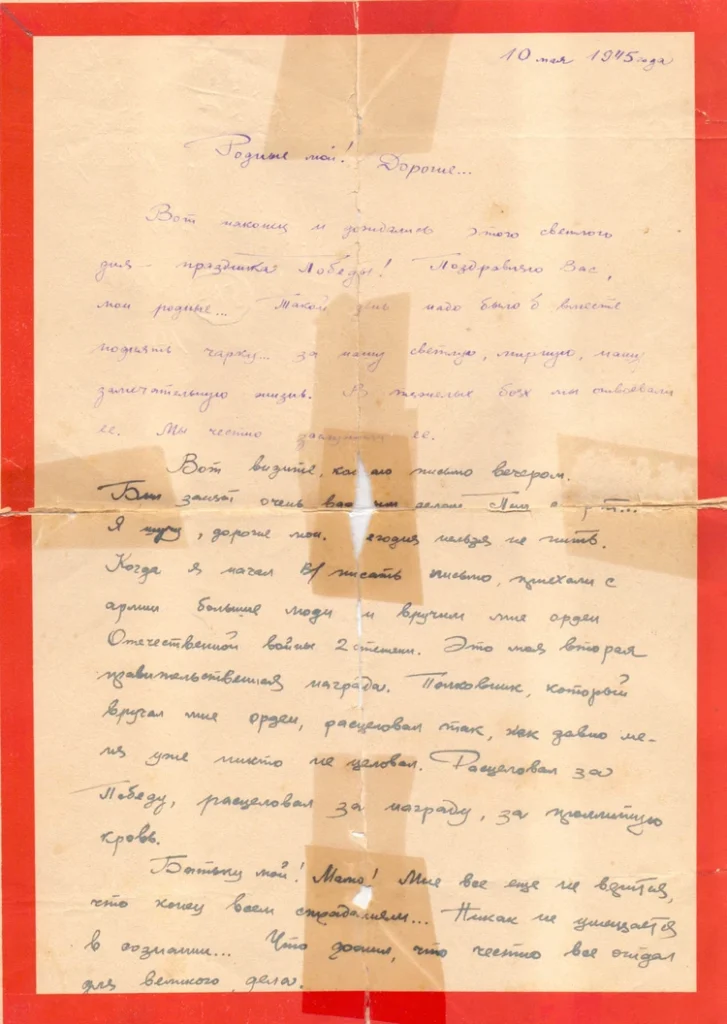 10 мая 1945 года
Родные мои! Дорогие...
Вот наконец и дождались этого светлого
дня - праздника Победы! Поздравляю Вас,
мои родные... Такой день надо было б вместе
поднять чарку... за нашу светлую, мирную, нашу
замечательную жизнь. В тяжелых боях мы отвоевали
ее. Мы честно заслужили ее.
Вот видите, письмо вечером.
Был занят очень делом
Я шучу, дорогие мои. Сегодня нельзя не пить.
Когда я начал писать письмо, приехали с
армии большие люди и вручили мне орден
Отечественной войны 2 степени. Это моя вторая
правительственная награда. Полковник, который
вручал мне орден, расцеловал так, как давно ме-
ня уже никто не целовал. Расцеловал за
Победу, расцеловал за награду, за пролитую
кровь.
Батьку мой! Мамо! Мне все еще не верится,
что конец всем страданиям... Никак не умещается
в сознании... Что дожил, что честно все отдал
для великого дела.